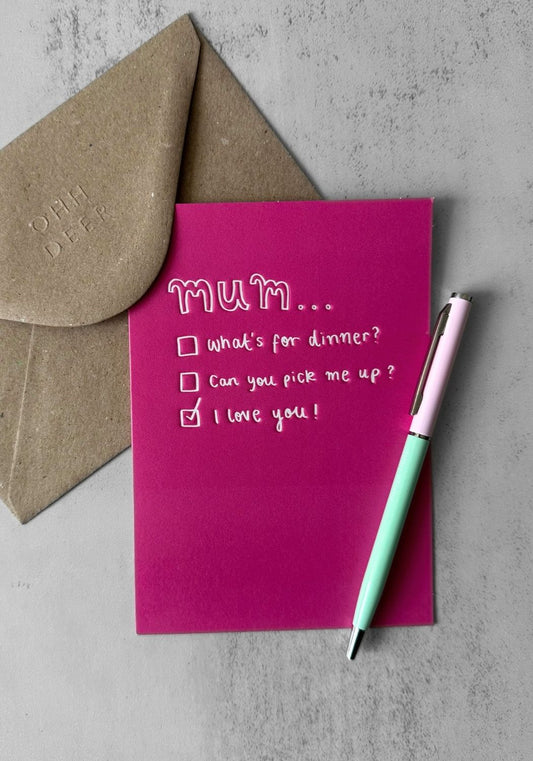 OHH
DEER
mum...
What's for dinner?
Can you pick me up?
I love you!